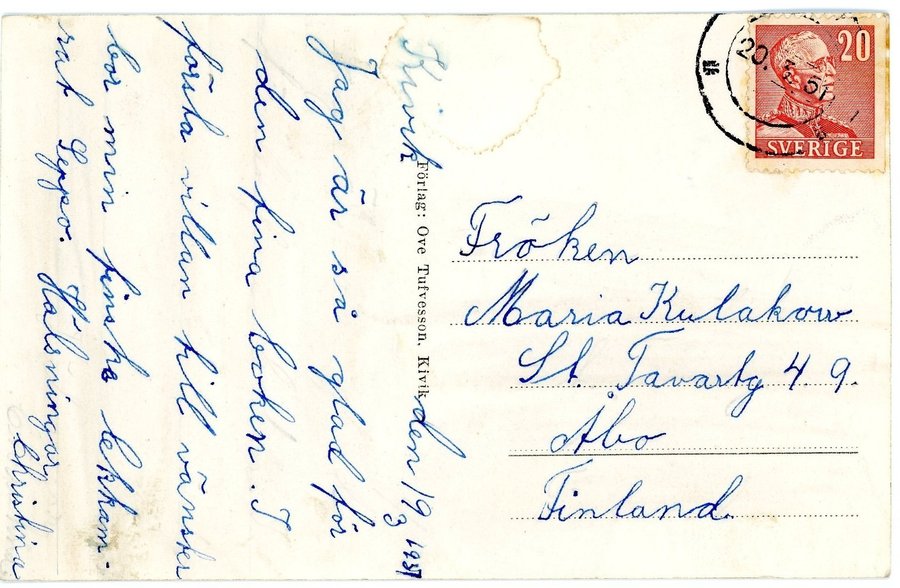 Kivik den 19/3 1951
Jag är så glad för
den fina boken. I
första villan till vänster
bor min finska lekkam-
rat Seppo. Hälsningar
Christina
Förlag: Ove Tufvesson, Kivik
20
SVERIGE
20. 3. 51
Fröken
Maria Kulakow
St. Tavastg 4. 9.
Åbo
Finland.